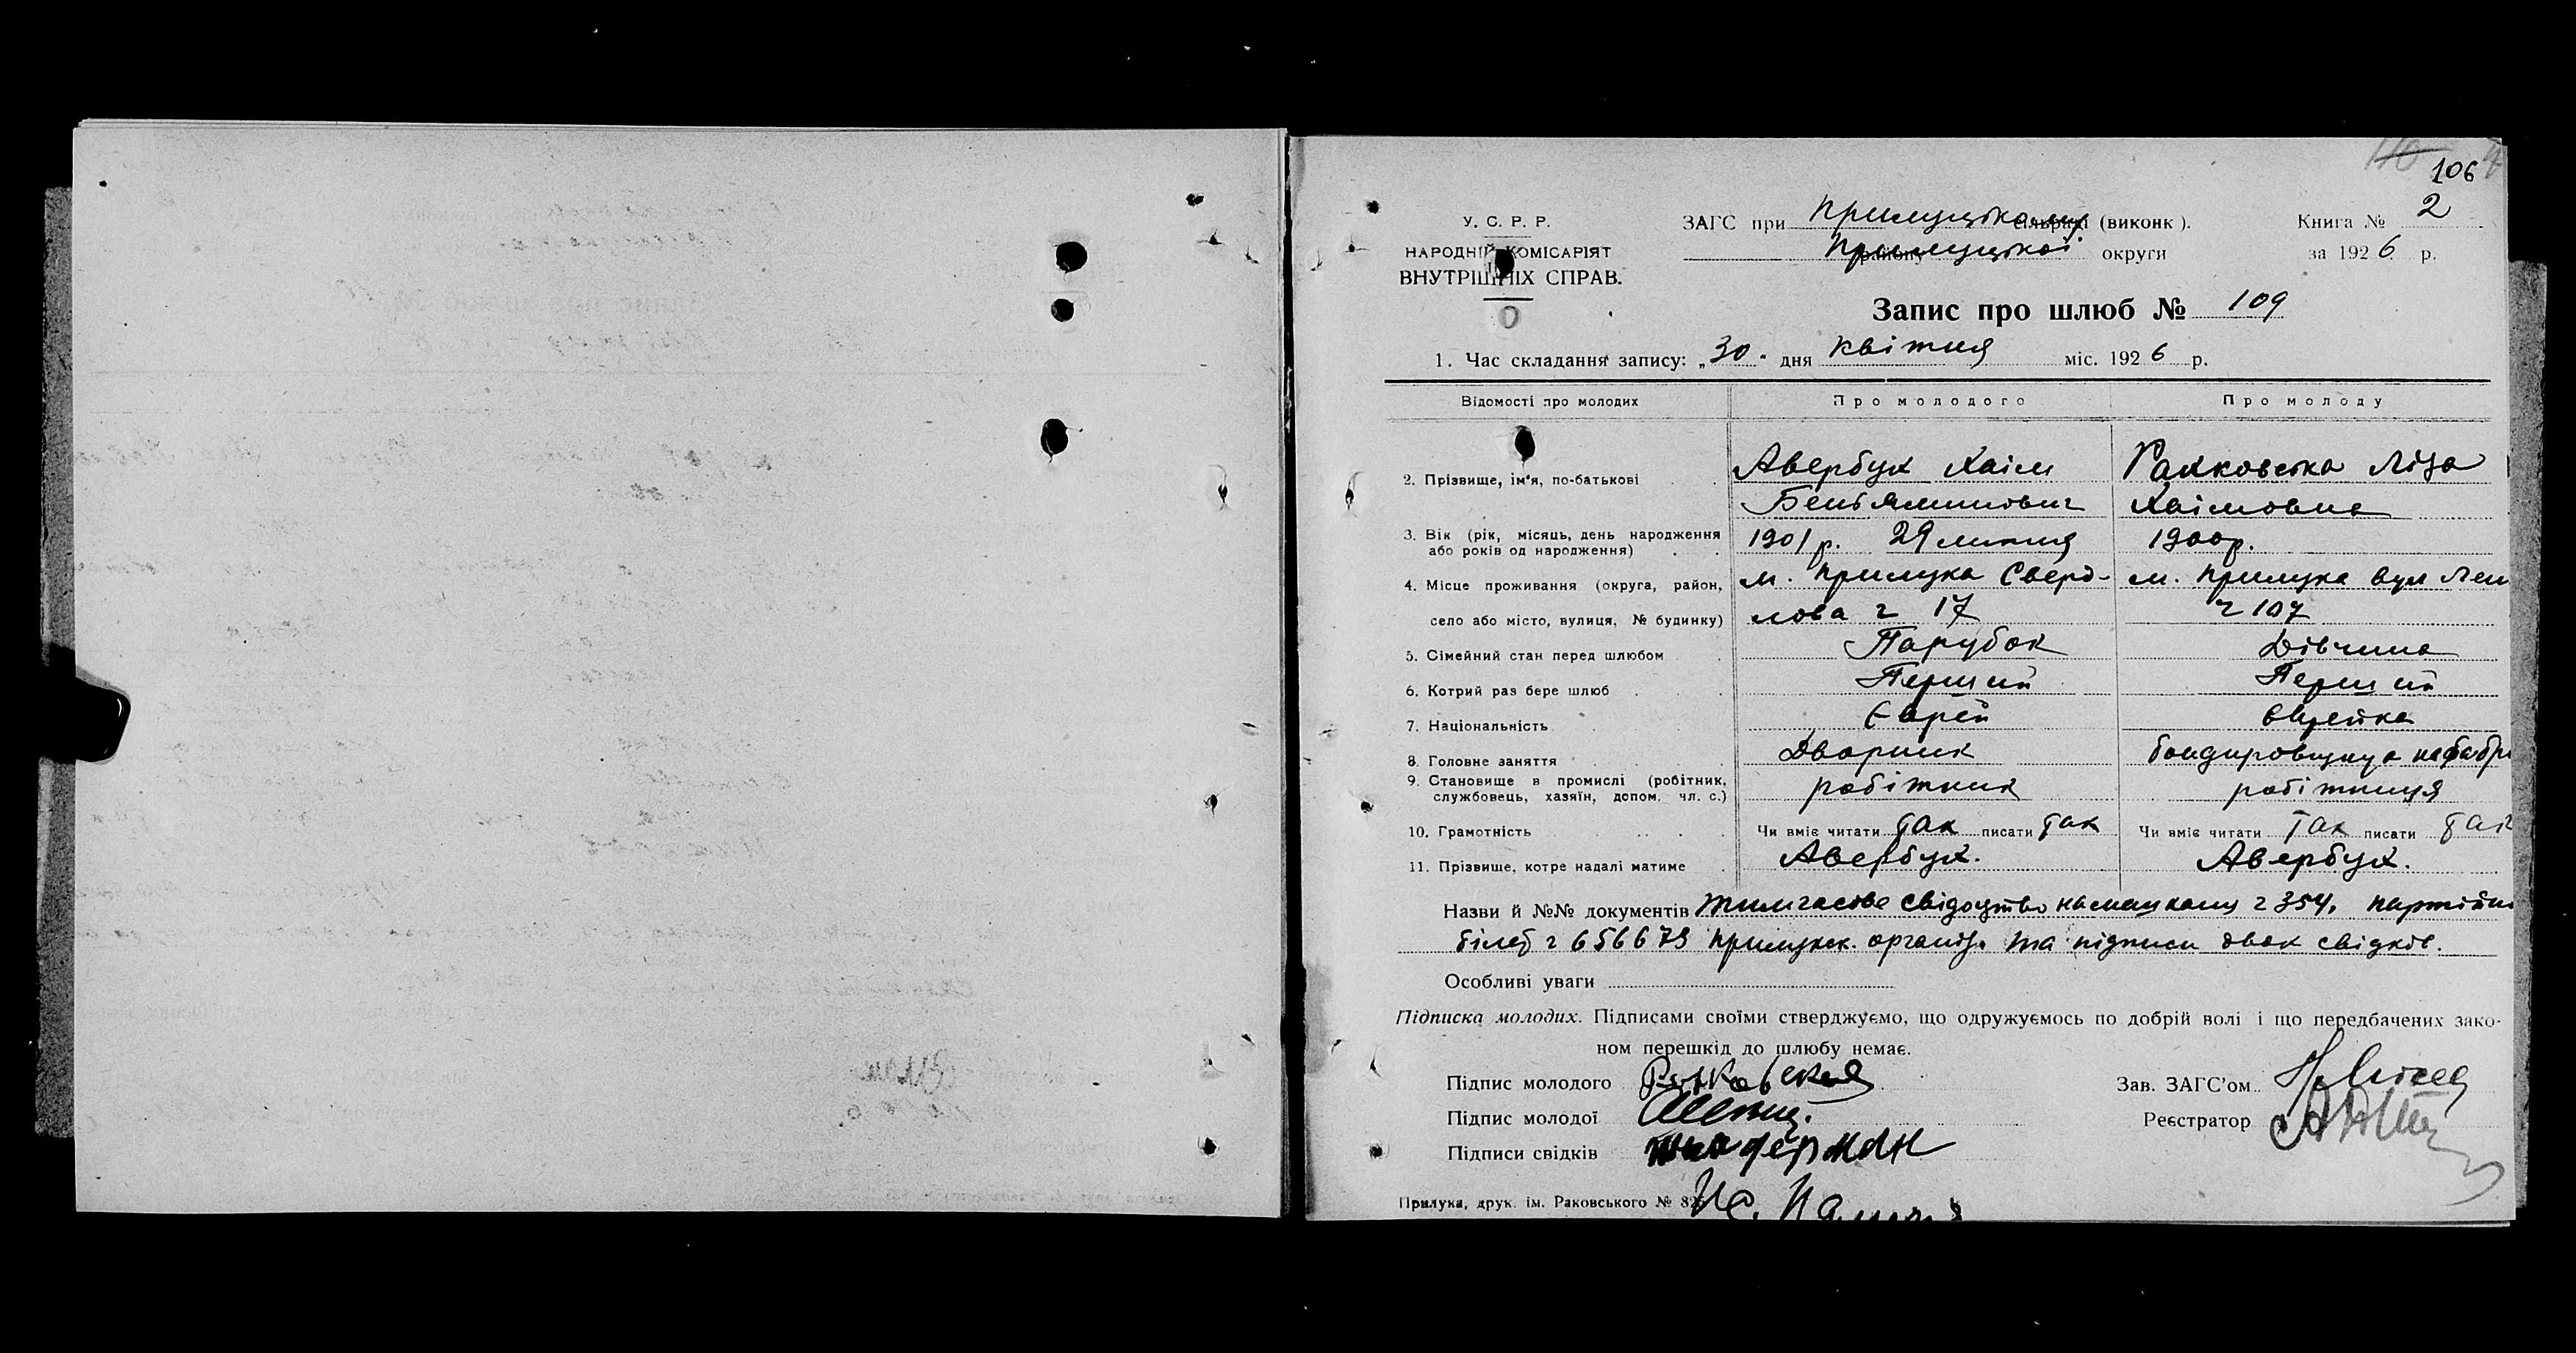 106
У. С. Р. Р.
НАРОДНІЙ КОМІСАРІЯТ
ВНУТРІШНІХ СПРАВ.
ЗАГС при Прилуцькому сільраді (виконк).
району Прилуцької округи
Книга № 2
за 1926 р.
Запис про шлюб № 109
1. Час складання запису: „30" дня квітня міс. 1926 р.
Відомості про молодих Про молодого Про молоду
2. Прізвище, ім'я, по-батькові Авербух Хаім Рахковська Ліза
Беньямінович Хаімовна
3. Вік (рік, місяць, день народження або років од народження) 1901 р. 29 липня 1900 р.
4. Місце проживання (округа, район, м. Прилука Сверд- м. Прилука вул Лен
село або місто, вулиця, № будинку) лова ч 17 ч 107
5. Сімейний стан перед шлюбом Парубок Дівчина
6. Котрий раз бере шлюб Перший Перший
7. Національність Єврей єврейка
8. Головне заняття Дворник бандировщиця на фабри
9. Становище в промислі (робітник, службовець, хазяїн, допом. чл. с.) робітник робітниця
10. Грамотність Чи вміє читати так писати так Чи вміє читати так писати так
11. Прізвище, котре надалі матиме Авербух. Авербух.
Назви й №№ документів Тимчасове свідоцтво ч 354, партійн
білет ч 656673 Прилуцьк. організ. та підписи двох свідків.
Особливі уваги
Підписка молодих. Підписами своїми стверджуємо, що одружуємось по добрій волі і що передбачених зако-
ном перешкід до шлюбу немає.
Підпис молодого Рахковская
Підпис молодої
Підписи свідків
Зав. ЗАГС'ом
Реєстратор
Прилука, друк. ім. Раковського № 825